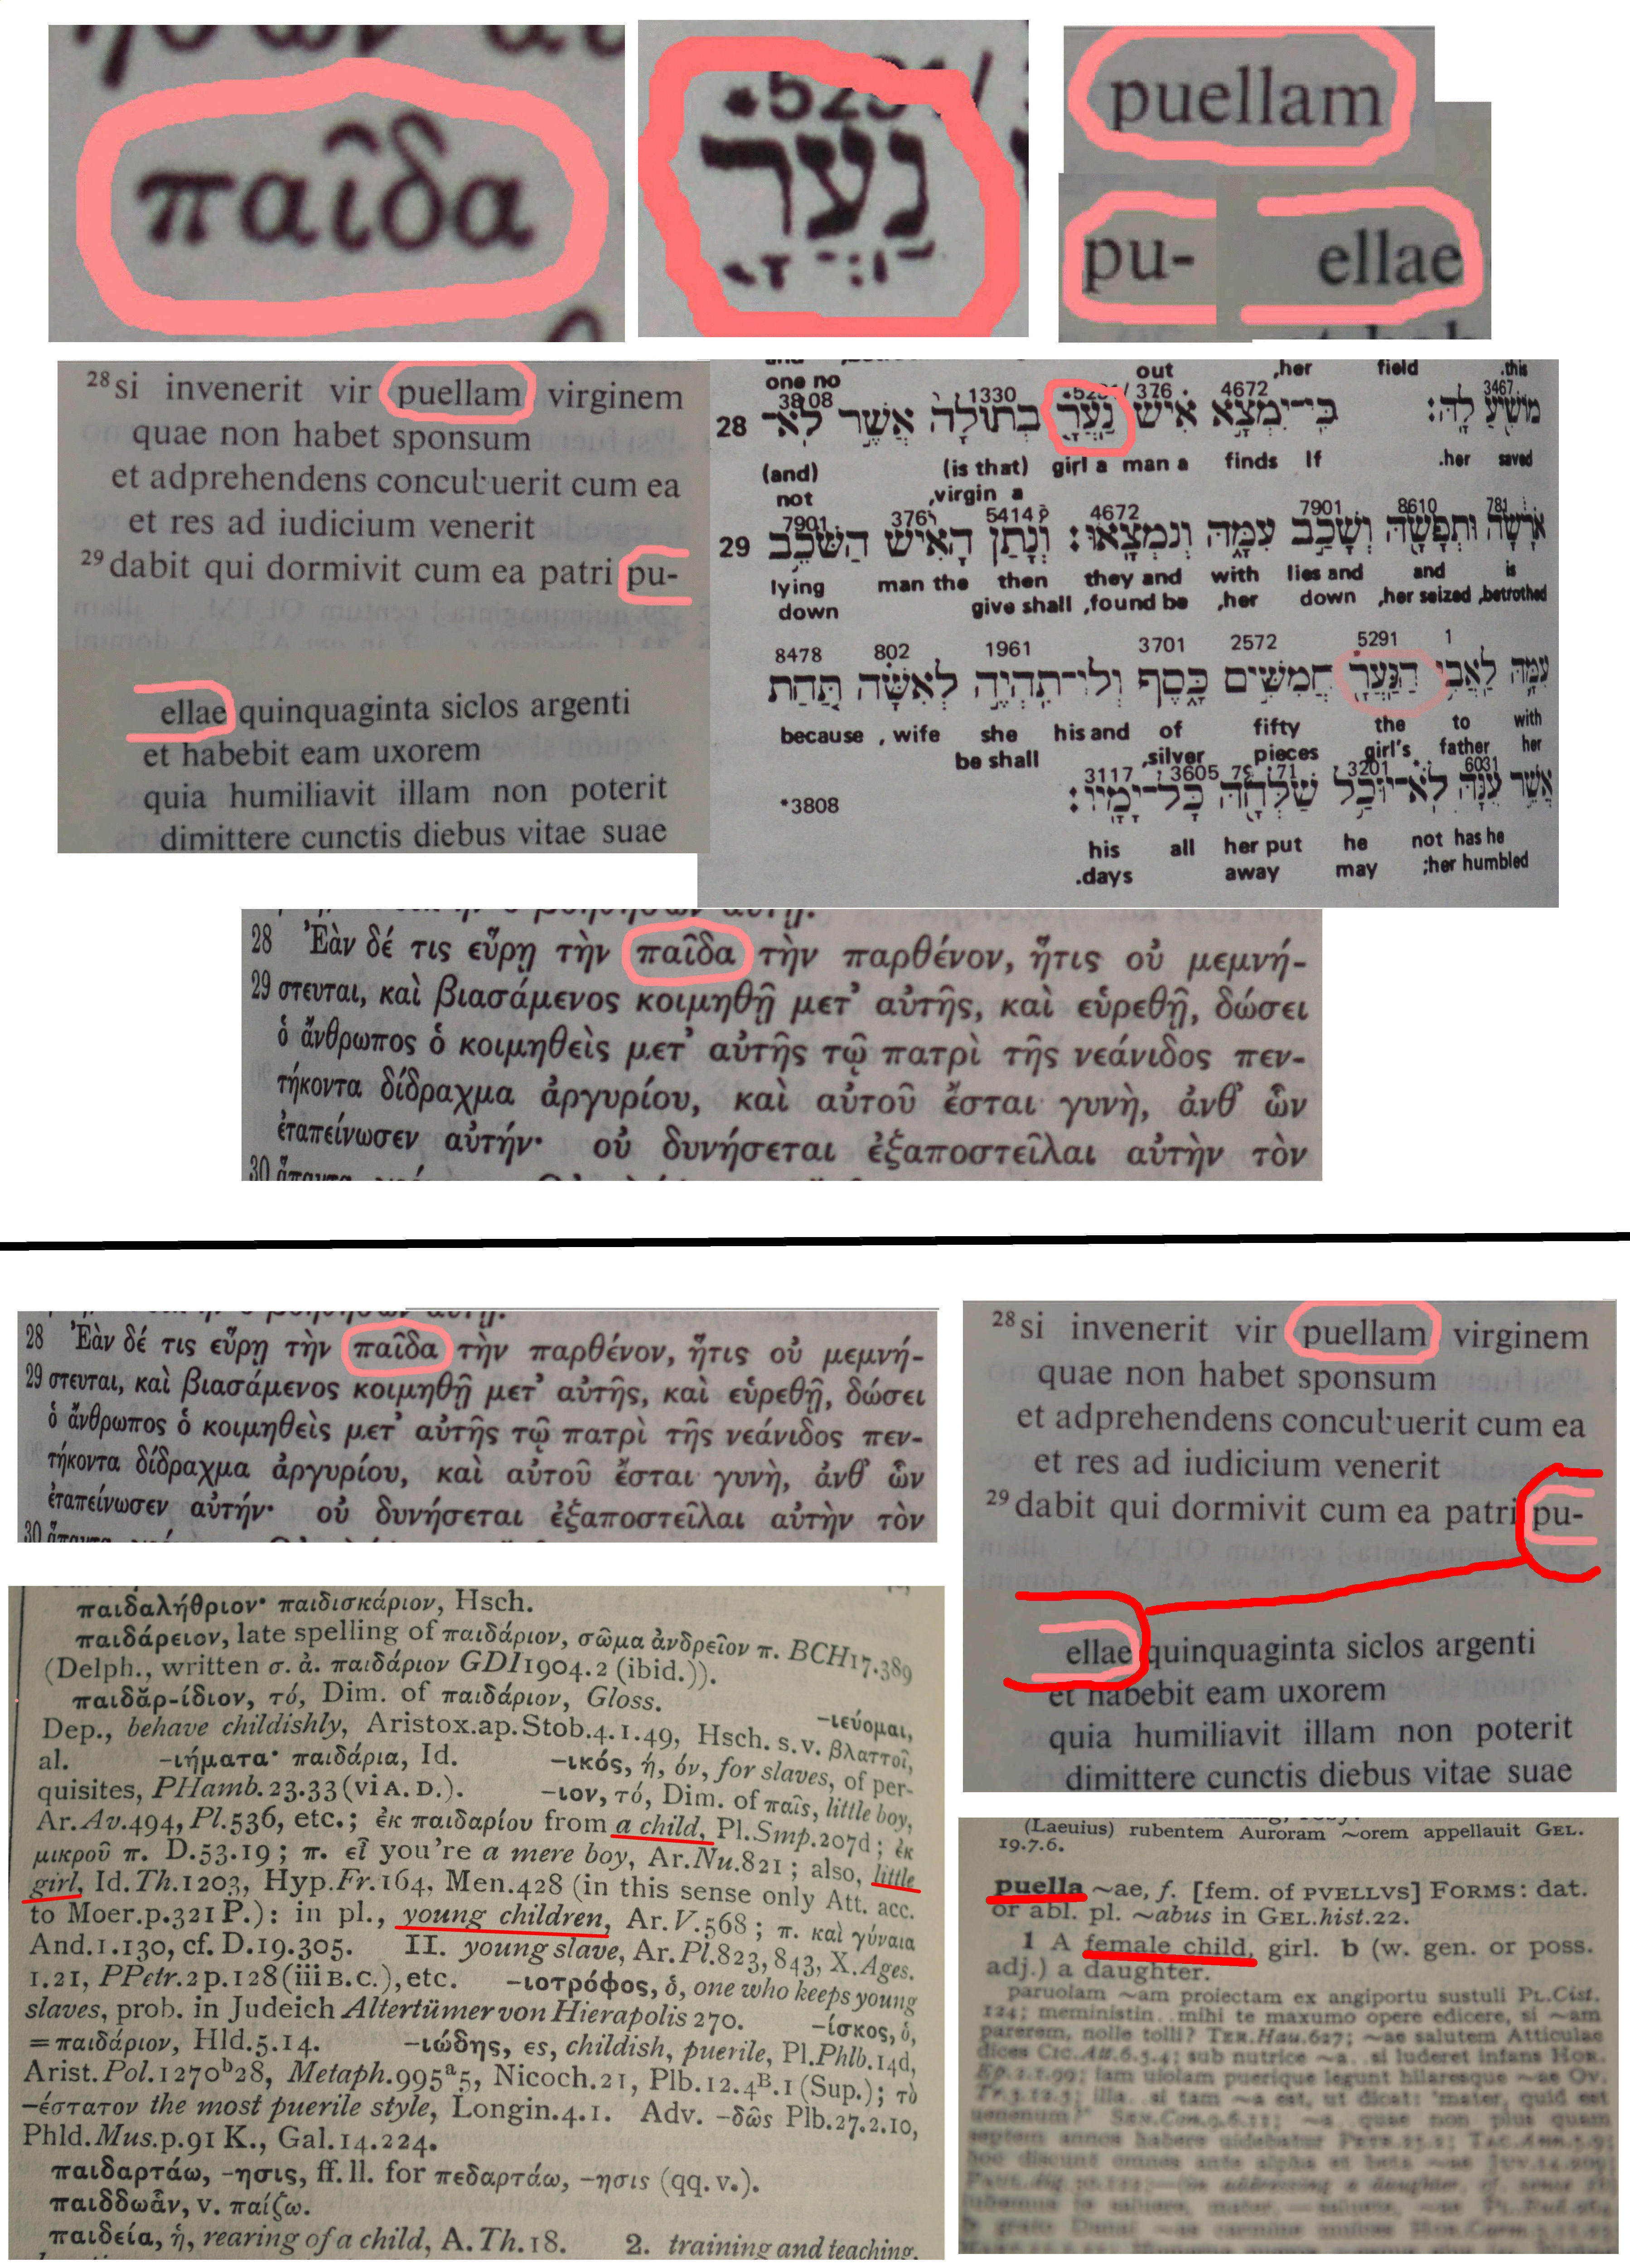 παῖδα
נַעֲרָ
puellam
pu- ellae
28 si invenerit vir puellam virginem
quae non habet sponsum
et adprehendens concubuerit cum ea
et res ad iudicium venerit
29 dabit qui dormivit cum ea patri pu-
ellae quinquaginta siclos argenti
et habebit eam uxorem
quia humiliavit illam non poterit
dimittere cunctis diebus vitae suae
one no out ,her field .this
3808 1330 376 4672 3467
28 מוֹשִׁיעַ לָהּ׃ כִּי־יִמְצָא אִישׁ נַעֲרָ בְתוּלָה אֲשֶׁר לֹא־
(and) (is that) girl a man a finds If .her saved
not ,virgin a
7901 376 5414 4672 7901 8610 781
29 אֹרָשָׂה וּתְפָשָׂהּ וְשָׁכַב עִמָּהּ וְנִמְצָאוּ׃ וְנָתַן הָאִישׁ הַשֹּׁכֵב
lying man the then they and with lies and and is
down give shall ,found be ,her down ,her seized ,betrothed
8478 802 1961 3701 2572 5291 1
עִמָּהּ לַאֲבִי הַנַּעֲרָ חֲמִשִּׁים כָּסֶף וְלוֹ־תִהְיֶה לְאִשָּׁה תַּחַת
because , wife she his and of fifty the to with
be shall ,silver pieces girl's father her
3117 3605 7971 3201 6031
*3808 אֲשֶׁר עִנָּהּ לֹא־יוּכַל שַׁלְּחָהּ כָּל־יָמָיו׃
his all her put he not has he
.days away may ;her humbled
28 Ἐὰν δέ τις εὕρῃ τὴν παῖδα τὴν παρθένον, ἥτις οὐ μεμνή-
29 στευται, καὶ βιασάμενος κοιμηθῇ μετ' αὐτῆς, καὶ εὑρεθῇ, δώσει
ὁ ἄνθρωπος ὁ κοιμηθεὶς μετ' αὐτῆς τῷ πατρὶ τῆς νεάνιδος πεν-
τήκοντα δίδραχμα ἀργυρίου, καὶ αὐτοῦ ἔσται γυνὴ, ἀνθ' ὧν
ἐταπείνωσεν αὐτήν· οὐ δυνήσεται ἐξαποστεῖλαι αὐτὴν τὸν
30
28 Ἐὰν δέ τις εὕρῃ τὴν παῖδα τὴν παρθένον, ἥτις οὐ μεμνή-
29 στευται, καὶ βιασάμενος κοιμηθῇ μετ' αὐτῆς, καὶ εὑρεθῇ, δώσει
ὁ ἄνθρωπος ὁ κοιμηθεὶς μετ' αὐτῆς τῷ πατρὶ τῆς νεάνιδος πεν-
τήκοντα δίδραχμα ἀργυρίου, καὶ αὐτοῦ ἔσται γυνὴ, ἀνθ' ὧν
ἐταπείνωσεν αὐτήν· οὐ δυνήσεται ἐξαποστεῖλαι αὐτὴν τὸν
30
28 si invenerit vir puellam virginem
quae non habet sponsum
et adprehendens concubuerit cum ea
et res ad iudicium venerit
29 dabit qui dormivit cum ea patri pu-
ellae quinquaginta siclos argenti
et habebit eam uxorem
quia humiliavit illam non poterit
dimittere cunctis diebus vitae suae
παιδαλήθριον· παιδισκάριον, Hsch.
παιδάρειον, late spelling of παιδάριον, σῶμα ἀνδρεῖον π. BCH17.389
(Delph., written σ. ἀ. παιδάριον GDI1904.2 (ibid.)).
παιδᾰρ-ίδιον, τό, Dim. of παιδάριον, Gloss. -ιεύομαι,
Dep., behave childishly, Aristox.ap.Stob.4.1.49, Hsch. s.v. βλαττοῖ,
al. -ιήματα· παιδάρια, Id. -ικός, ή, όν, for slaves, of per-
quisites, PHamb.23.33 (vi A. D.). -ιον, τό, Dim. of παῖς, little boy,
Ar.Av.494, Pl.536, etc.; ἐκ παιδαρίου from a child, Pl.Smp.207d; ἐκ
μικροῦ π. D.53.19; π. εἶ you're a mere boy, Ar.Nu.821; also, little
girl, Id.Th.1203, Hyp.Fr.164, Men.428 (in this sense only Att. acc.
to Moer.p.321 P.): in pl., young children, Ar.V.568; π. καὶ γύναια
And.1.130, cf. D.19.305. II. young slave, Ar.Pl.823, 843, X.Ages.
1.21, PPetr.2p.128 (iii B.C.), etc. -ιοτρόφος, ὁ, one who keeps young
slaves, prob. in Judeich Altertümer von Hierapolis 270. -ίσκος, ὁ,
=παιδάριον, Hld.5.14. -ιώδης, ες, childish, puerile, Pl.Phlb.14d,
Arist.Pol.1270b28, Metaph.995a5, Nicoch.21, Plb.12.4B.1 (Sup.); τὸ
-έστατον the most puerile style, Longin.4.1. Adv. -δῶς Plb.27.2.10,
Phld.Mus.p.91 K., Gal.14.224.
παιδαρτάω, -ησις, ff. ll. for πεδαρτάω, -ησις (qq. v.).
παιδδωἄν, v. παίζω.
παιδεία, ἡ, rearing of a child, A.Th.18. 2. training and teaching,
(Laeuius) rubentem Auroram ~orem appellauit GEL.
19.7.6.
puella ~ae, f. [fem. of PVELLVS] FORMS: dat.
or abl. pl. ~abus in GEL.hist.22.
1 A female child, girl. b (w. gen. or poss.
adj.) a daughter.
paruolam ~am proiectam ex angiportu sustuli PL.Cist.
124; meministin.. mihi te maxumo opere edicere, si ~am
parerem, nolle tolli? TER.Hau.627; ~ae salutem Atticulae
dices CIC.Att.6.5.4; sub nutrice ~a.. si luderet infans HOR.